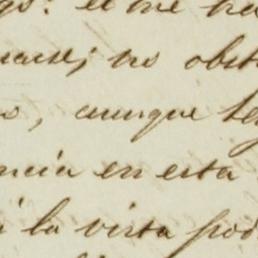 el me
no obst
, aunque te
ncia en esta
la vista pod